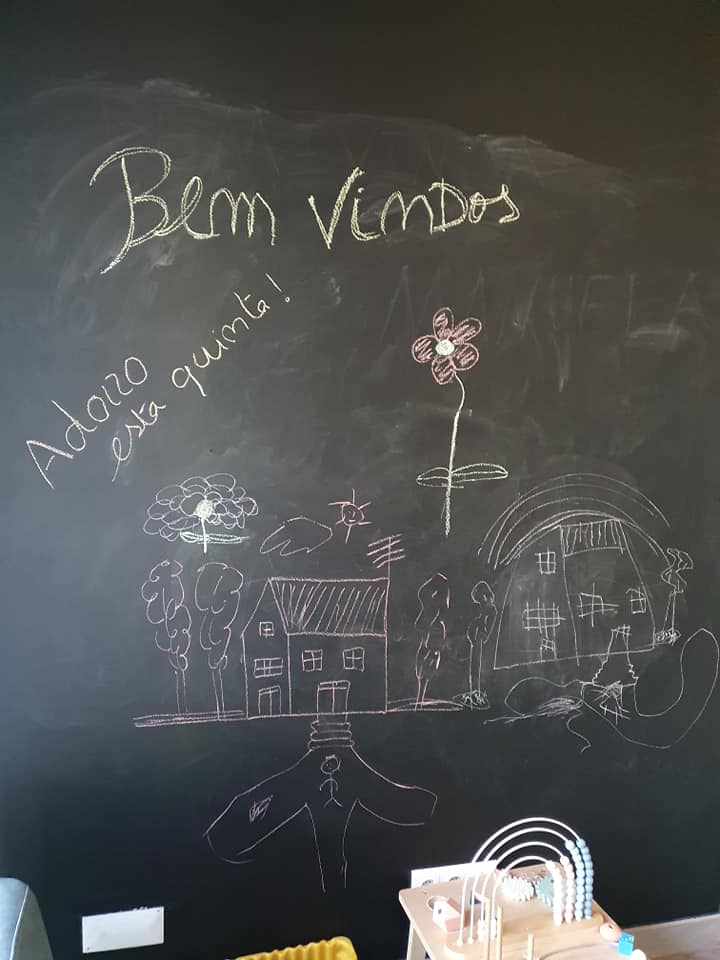 Bem Vindos
Adoro
esta quinta!